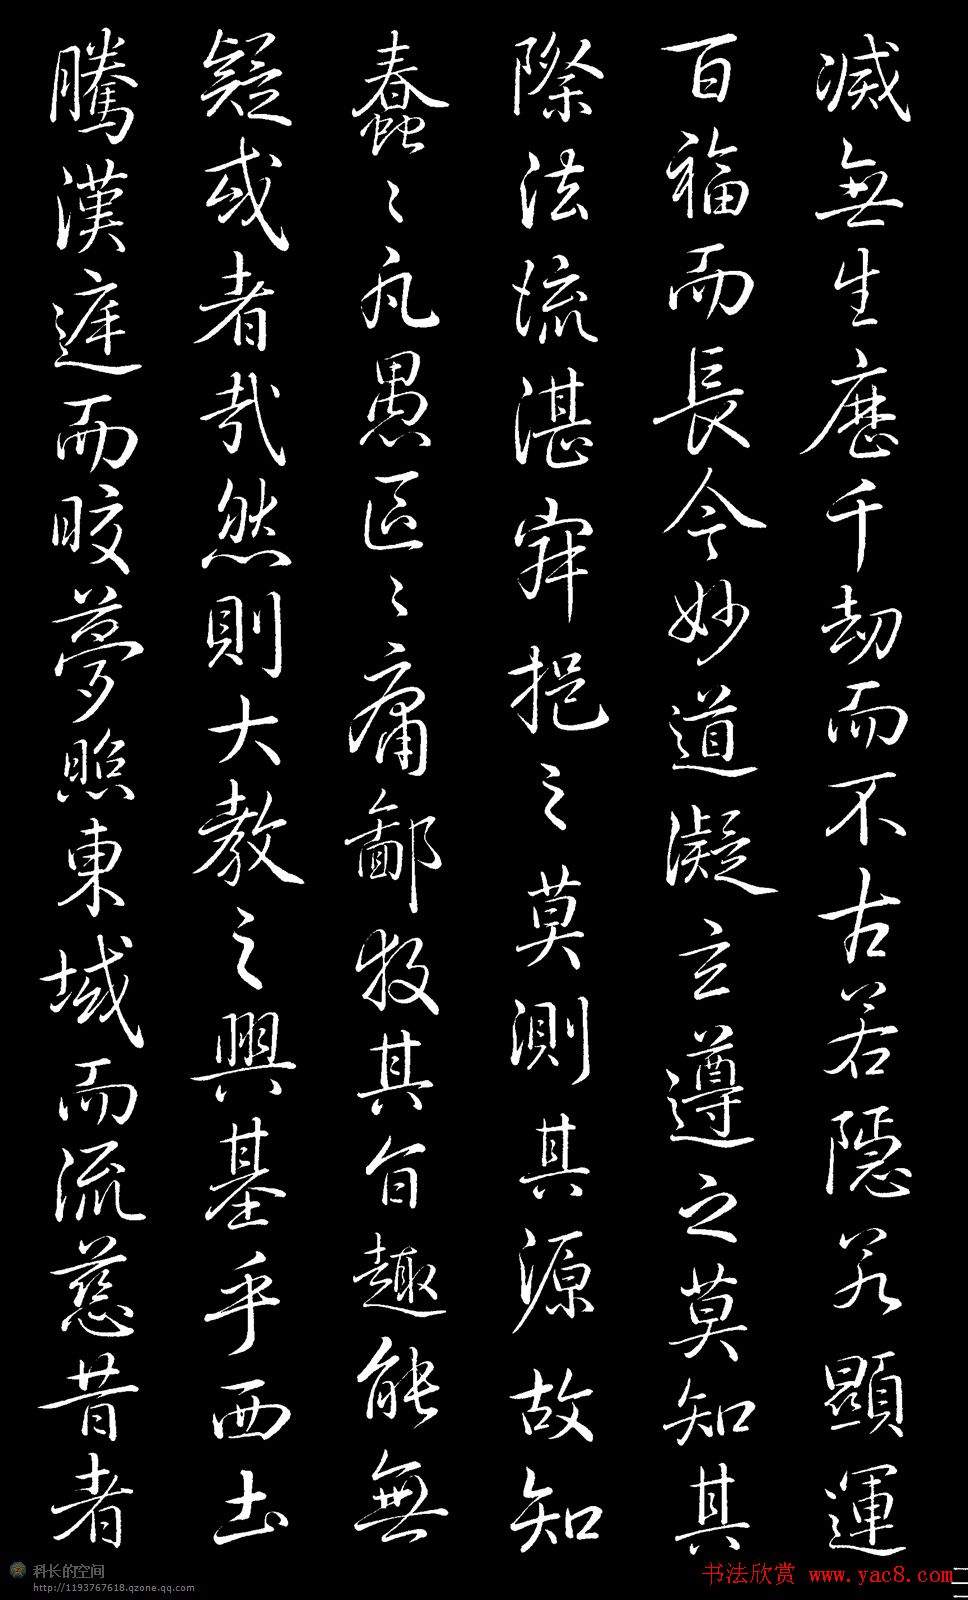 滅無生歷千劫而不古若隱若顯運
百福而長今妙道凝玄遵之莫知其
際法流湛寂挹之莫測其源故知
蠢〻凡愚區〻庸鄙投其旨趣能無
疑或者哉然則大教之興基乎西土
騰漢庭而皎夢照東域而流慈昔者
科长的空间
http://1193767618.qzone.qq.com
书法欣赏 www.yac8.com